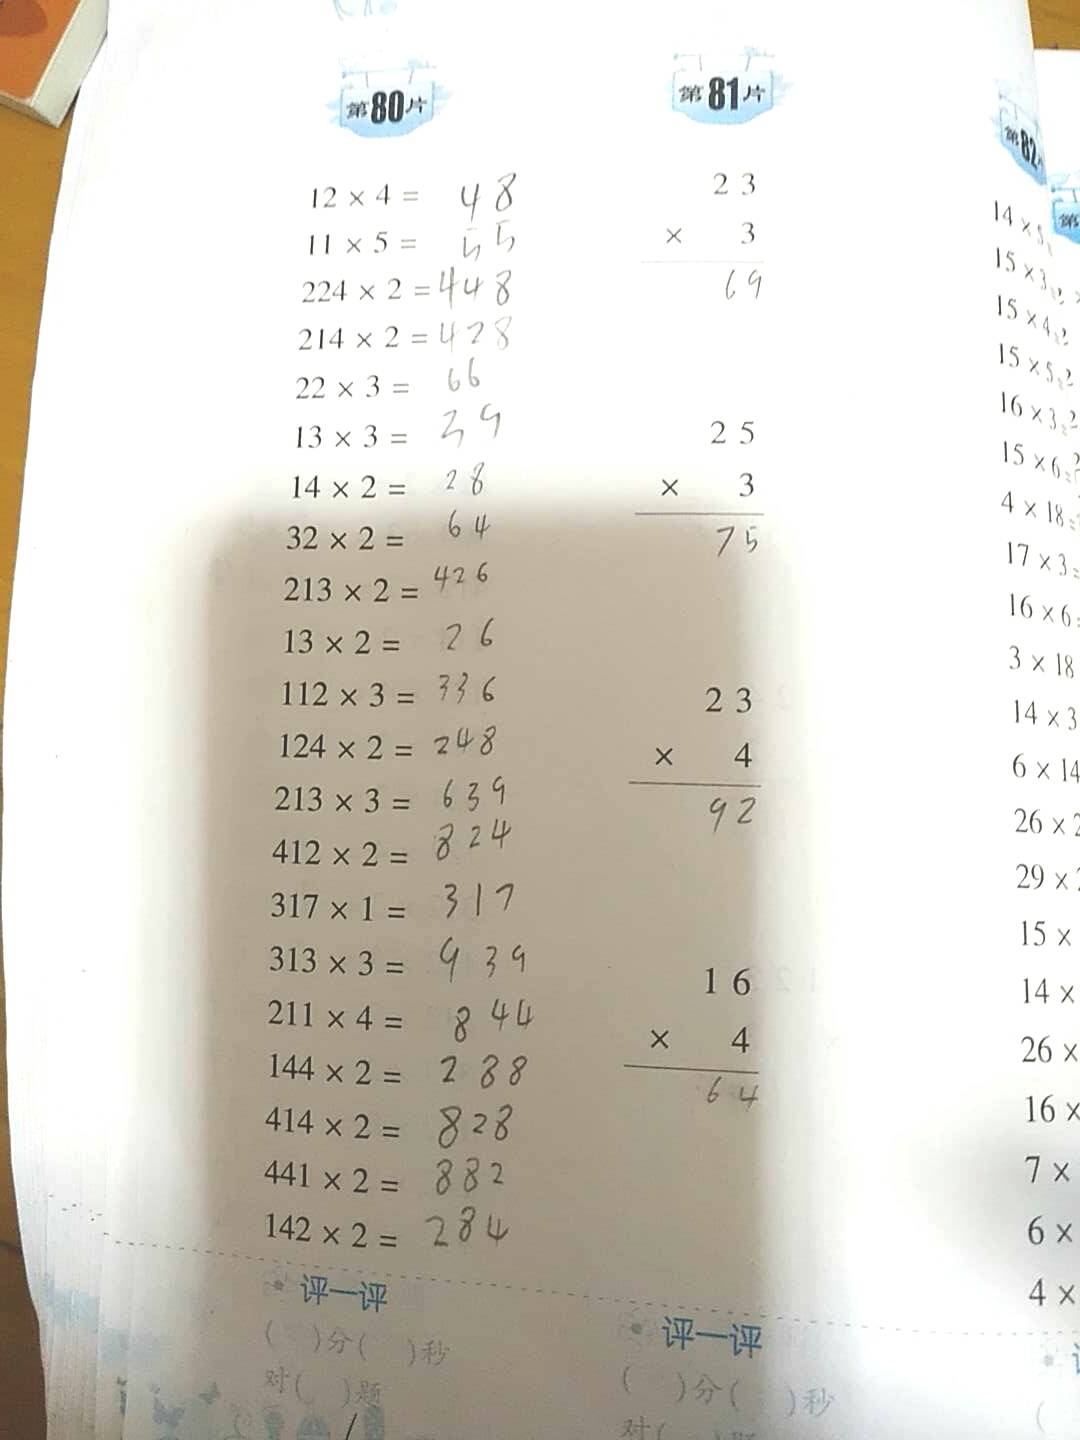 第80片
12 × 4 = 48
11 × 5 = 55
224 × 2 = 448
214 × 2 = 428
22 × 3 = 66
13 × 3 = 39
14 × 2 = 28
32 × 2 = 64
213 × 2 = 426
13 × 2 = 26
112 × 3 = 336
124 × 2 = 248
213 × 3 = 639
412 × 2 = 824
317 × 1 = 317
313 × 3 = 939
211 × 4 = 844
144 × 2 = 288
414 × 2 = 828
441 × 2 = 882
142 × 2 = 284
评一评
( )分( )秒
对( )题
第81片
23
× 3
69
25
× 3
75
23
× 4
92
16
× 4
64
评一评
( )分( )秒
对(
第82
14 × 5
15 × 3
15 × 4
15 × 5
16 × 3
15 × 6
4 × 18
17 × 3
16 × 6
3 × 18
14 × 3
6 × 14
26 × 2
29 ×
15 ×
14 ×
26 ×
16 ×
7 ×
6 ×
4 ×
第